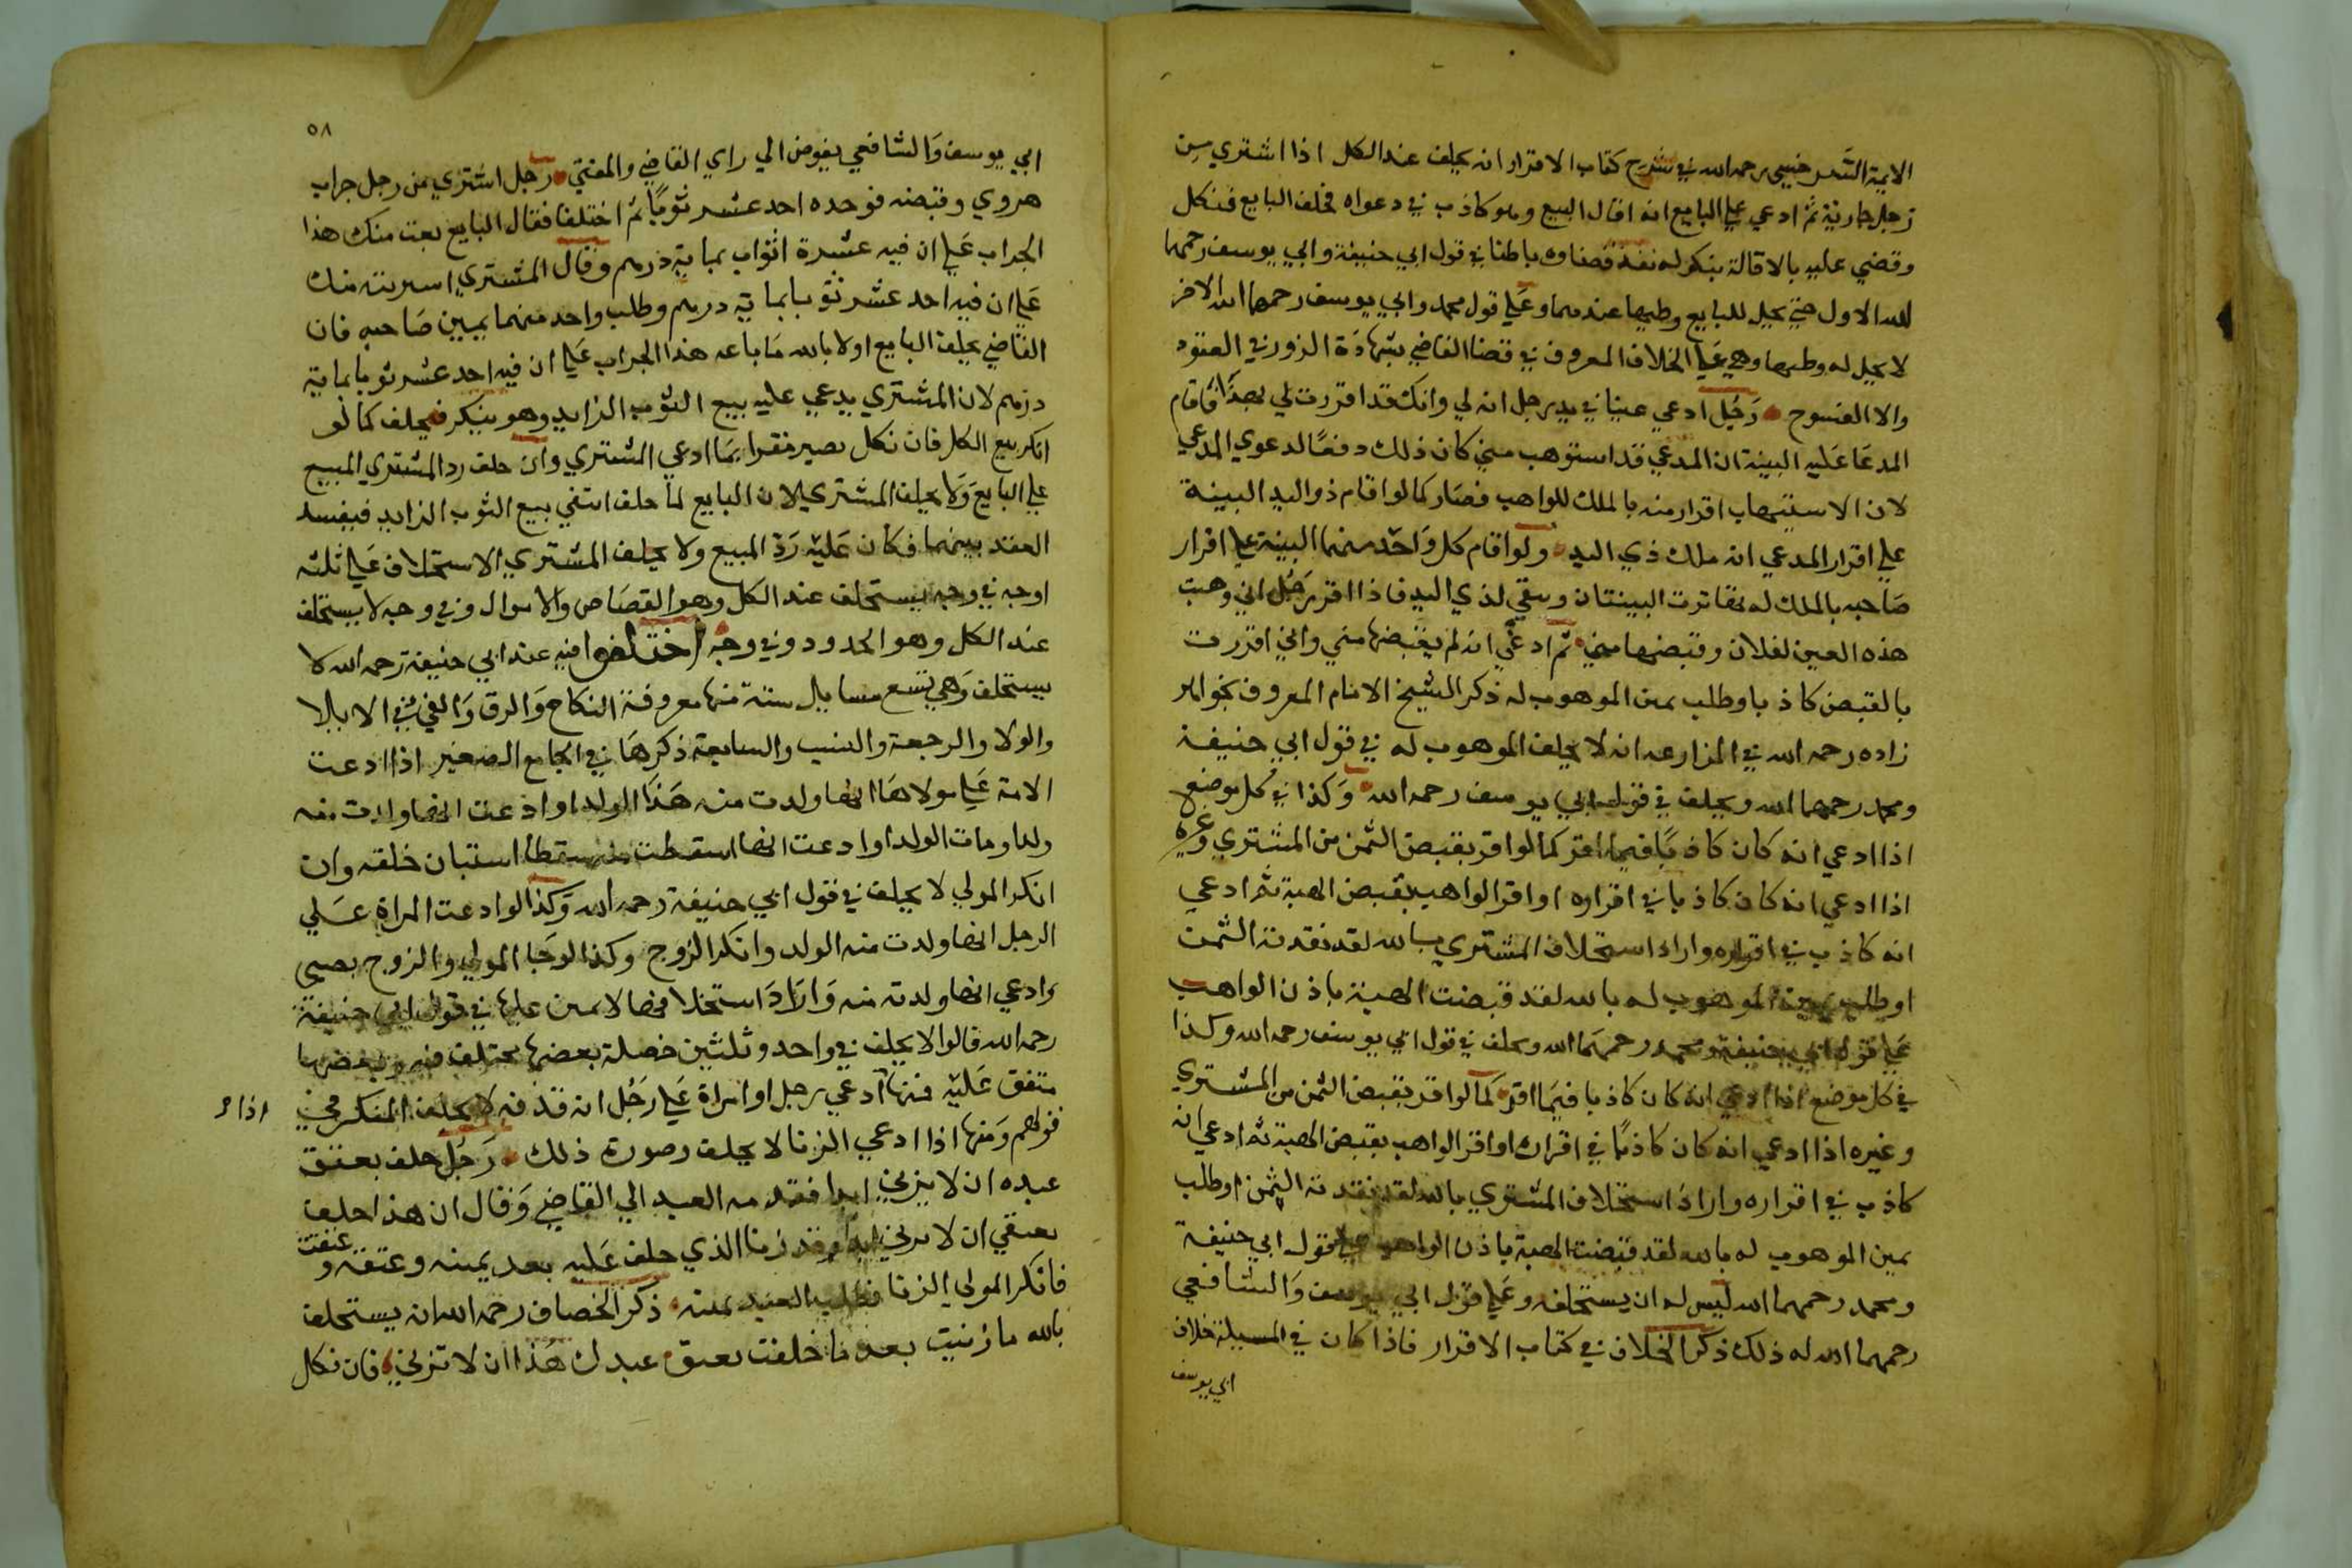 الايمة السرخسي رحمه الله في شرح كتاب الاقرار انه يحلف عند الكل اذا اشتري من
رجل جارية ثم ادعي علي البايع انه اقال البيع وهو كاذب في دعواه فحلف البايع فنكل
وقضي عليه بالاقالة بنكوله نفذ قضاوه باطنا في قول ابي حنيفة وابي يوسف رحمهما
الله الاول حتي يحل للبايع وطيها عندهما وعلي قول محمد وابي يوسف رحمهما الله الاخر
لا يحل له وطيها وهي علي الخلاف المعروف في قضا القاضي بشهادة الزور في العقود
والا الفسوخ رجل ادعي عينا في يد رجل انه لي وانك قد اقررت لي بهذا فاقام
المدعا عليه البينة ان المدعي قد استوهب مني كان ذلك دفعا لدعوي المدعي
لان الاستيهاب اقرار منه بالملك للواهب فصار كما لو اقام ذو اليد البينة
علي اقرار المدعي انه ملك ذي اليد ولو اقام كل واحد منهما البينة علي اقرار
صاحبه بالملك له تهاترت البينتان وبقي لذي اليد فاذا اقر رجل اني وهبت
هذه العين لفلان وقبضها مني ثم ادعي انه لم يقبضها مني واني اقررت
بالقبض كاذبا وطلب يمين الموهوب له ذكر الشيخ الامام المعروف بخواهر
زاده رحمه الله في المزارعه انه لا يحلف الموهوب له في قول ابي حنيفة
ومحمد رحمهما الله ويحلف في قول ابي يوسف رحمه الله وكذا في كل موضع
اذا ادعي انه كان كاذبا فيما اقر كما لو اقر بقبض الثمن من المشتري وغيره
اذا ادعي انه كان كاذبا في اقراره او اقر الواهب بقبض الهبة ثم ادعي
انه كاذب في اقراره واراد استحلاف المشتري بالله لقد نقدته الثمن
او طلب يمين الموهوب له بالله لقد قبضت الهبة باذن الواهب
علي قول ابي حنيفة ومحمد رحمهما الله ويحلف في قول ابي يوسف رحمه الله وكذا
في كل موضع اذا ادعي انه كان كاذبا فيما اقر كما لو اقر بقبض الثمن من المشتري
وغيره اذا ادعي انه كان كاذبا في اقراره او اقر الواهب بقبض الهبة ثم ادعي انه
كاذب في اقراره واراد استحلاف المشتري بالله لقد نقدته الثمن او طلب
يمين الموهوب له بالله لقد قبضت الهبة باذن الواهب علي قول ابي حنيفة
ومحمد رحمهما الله ليس له ان يستحلفه وعلي قول ابي يوسف والشافعي
رحمهما الله له ذلك ذكر الخلاف في كتاب الاقرار فاذا كان في المسيلة خلاف
ابي يوسف
٥٨
ابي يوسف والشافعي يفوض الي راي القاضي والمفتي رجل اشتري من رجل جراب
هروي وقبضه فوجده احد عشر ثوبا ثم اختلفا فقال البايع بعت منك هذا
الجراب علي ان فيه عشرة اثواب بماية درهم وقال المشتري اشتريته منك
علي ان فيه احد عشر ثوبا بماية درهم وطلب واحد منهما يمين صاحبه فان
القاضي يحلف البايع اولا بالله ما باعه هذا الجراب علي ان فيه احد عشر ثوبا بماية
درهم لان المشتري يدعي عليه بيع الثوب الزايد وهو ينكر فيحلف كما لو
انكر بيع الكل فان نكل يصير مقرا بما ادعي المشتري وان حلف رد المشتري المبيع
علي البايع ولا يحلف المشتري لان البايع لما حلف انتفي بيع الثوب الزايد فيفسد
العقد بينهما فكان عليه رد المبيع ولا يحلف المشتري الاستحلاف علي ثلثه
اوجه في وجه يستحلف عند الكل وهو القصاص والاموال وفي وجه لا يستحلف
عند الكل وهو الحدود وفي وجه اختلفوا فيه عند ابي حنيفة رحمه الله لا
يستحلف وهي تسع مسايل ستة منها معروفة النكاح والرق والفي في الايلا
والولا والرجعة والنسب والسابعة ذكرها في الجامع الصغير اذا ادعت
الامة علي مولاها انها ولدت منه هذا الولد او ادعت انها ولدت منه
ولدا ومات الولد او ادعت انها اسقطت منه سقطا استبان خلقه وان
انكر المولي لا يحلف في قول ابي حنيفة رحمه الله وكذا لو ادعت المراة علي
الرجل انها ولدت منه الولد وانكر الزوج وكذا لو جا المولي والزوج بصبي
وادعي انها ولدته منه واراد استحلافها لا يمين عليها في قول ابي حنيفة
رحمه الله قالوا لا يحلف في واحد وثلثين خصلة بعضها مختلف فيه وبعضها
متفق عليه فمنها ادعي رجل او امراة علي رجل انه قذفه لا يحلف المنكر في
اذا
قولهم ومنها اذا ادعي الزنا لا يحلف وصورة ذلك رجل حلف بعتق
عبده ان لا يزني ابدا فقدمه العبد الي القاضي وقال ان هذا حلف
بعتقي ان لا يزني ابدا وقد زنا الذي حلف عليه بعد يمينه وعتقه وعتقت
فانكر المولي الزنا فطلب العبد يمينه ذكر الخصاف رحمه الله ان يستحلف
بالله ما زنيت بعد ما حلفت بعتق عبدك هذا ان لا تزني فان نكل